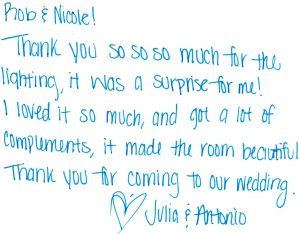 Rob & Nicole!
Thank you so so so much for the
lighting, it was a surprise for me!
I loved it so much, and got a lot of
complements, it made the room beautiful
Thank you for coming to our wedding.
♡ Julia & Antonio